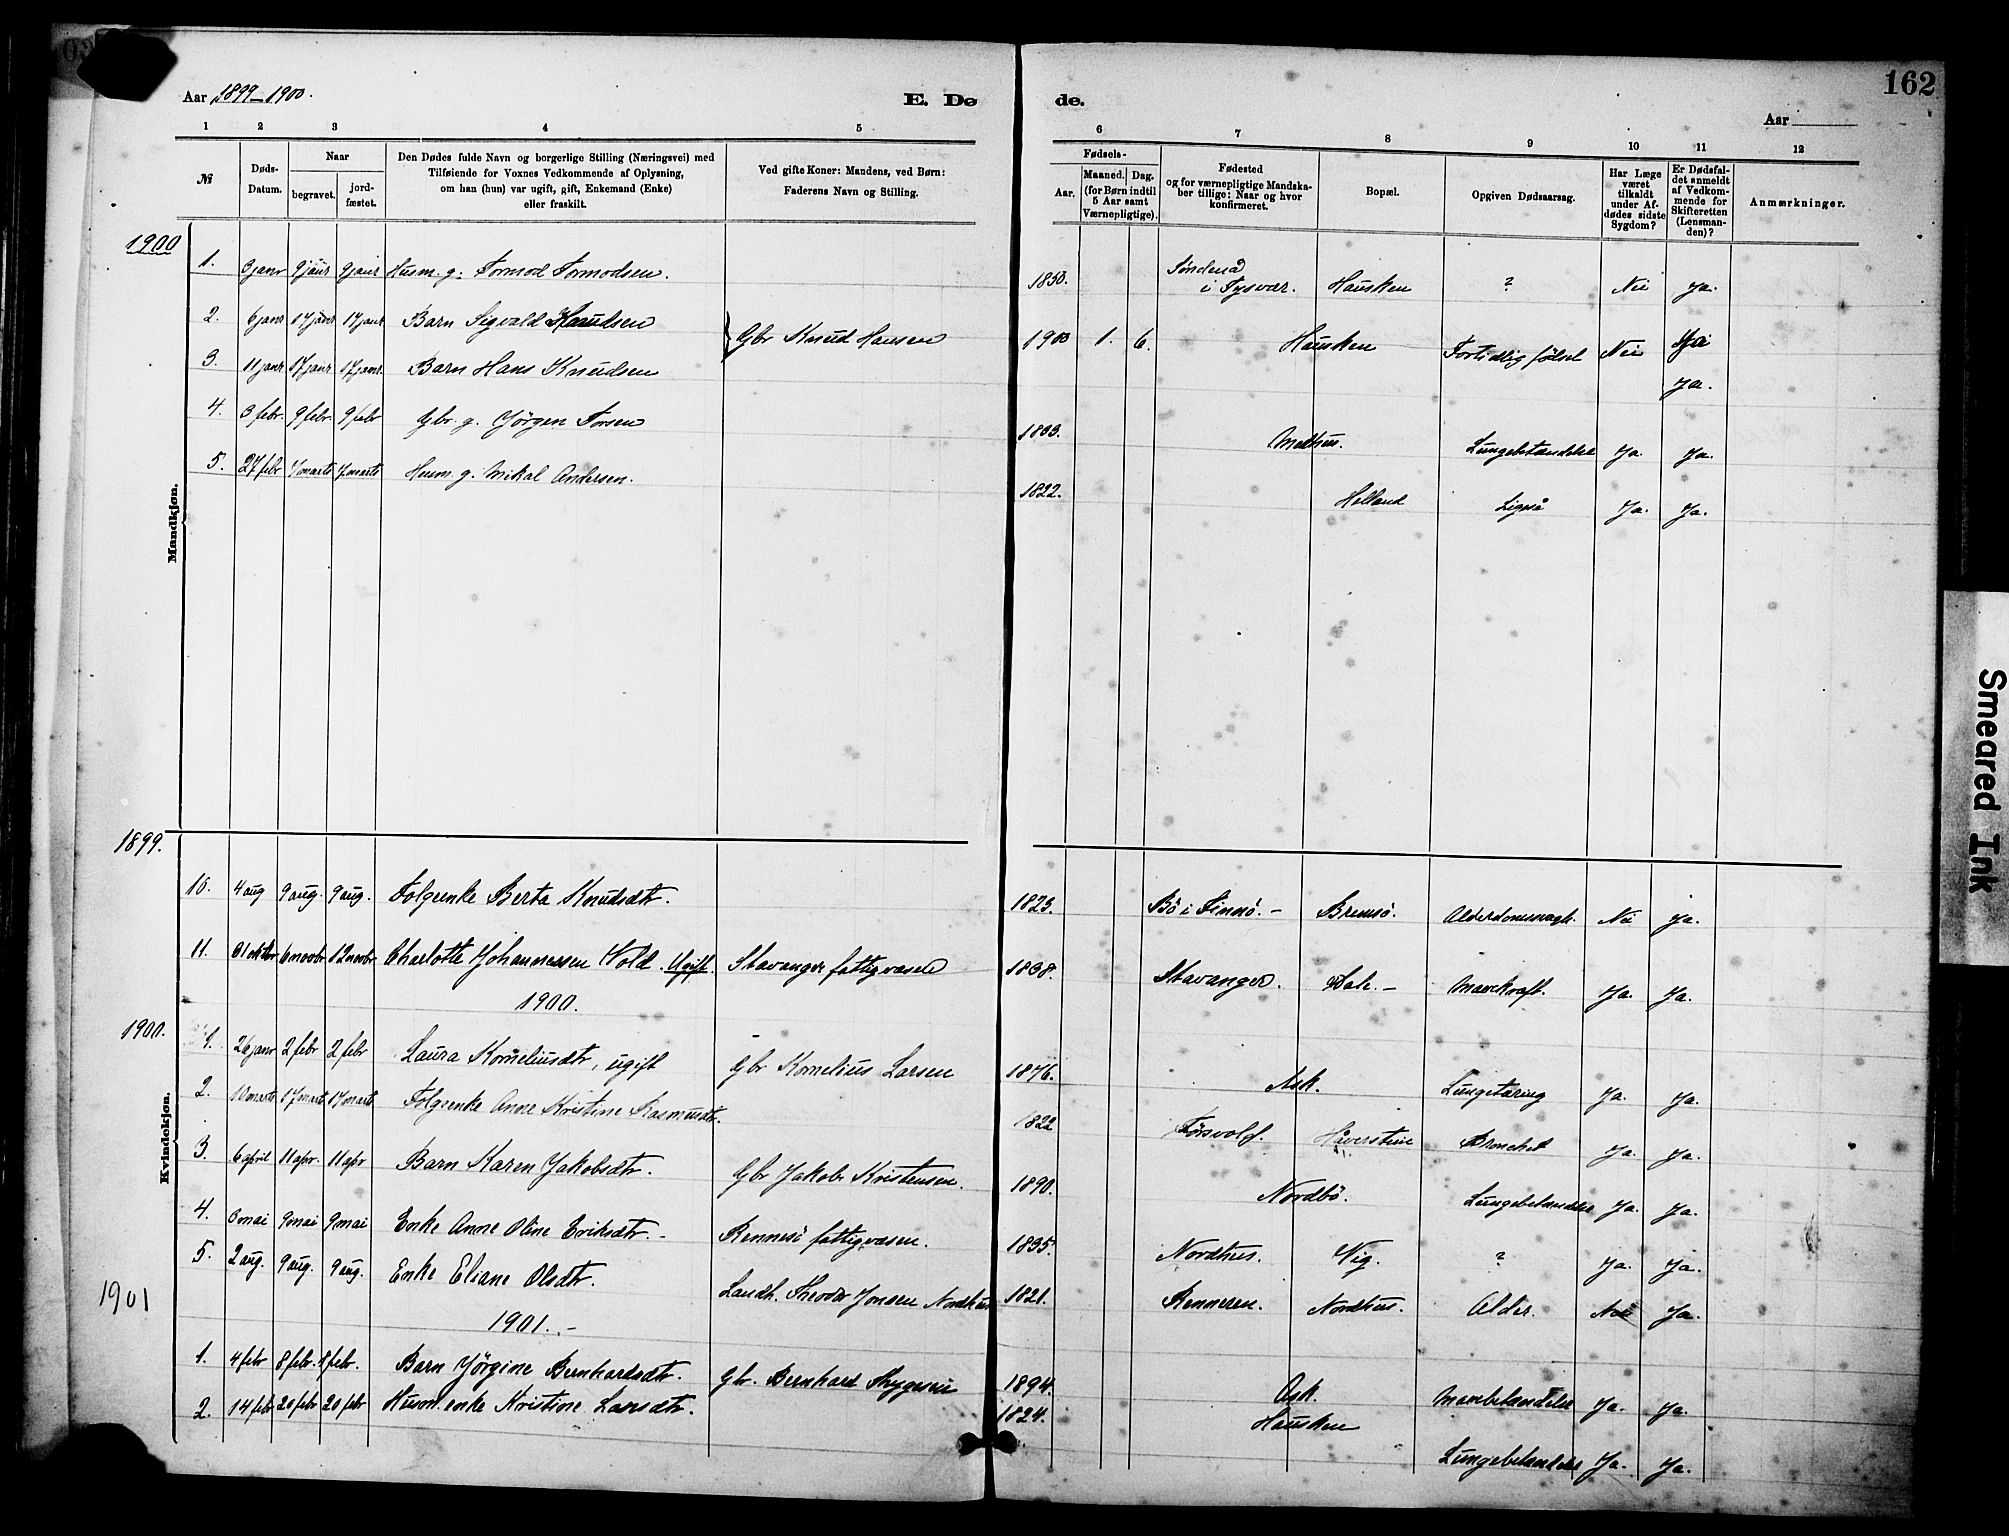 Aar 1899-1900.
E. Dø
de.
Aar
162
1 2 3 4 5
6 7 8 9 10 11 12
№
Døds-
Datum.
Naar
begravet.
jord-
fæstet.
Den Dødes fulde Navn og borgerlige Stilling (Næringsvei) med
Tilføiende for Voxnes Vedkommende af Oplysning,
om han (hun) var ugift, gift, Enkemand (Enke)
eller fraskilt.
Ved gifte Koner: Mandens, ved Børn:
Faderens Navn og Stilling.
Fødsels-
Aar.
Maaned. Dag.
(for Børn indtil
5 Aar samt
Værnepligtige).
Fødested
og for værnepligtige Mandska-
ber tillige: Naar og hvor
konfirmeret.
Bopæl.
Opgiven Dødsaarsag.
Har Læge
været
tilkaldt
under Af-
dødes sidste
Sygdom?
Er Dødsfal-
det anmeldt
af Vedkom-
mende for
Skifteretten
(Lensman-
den)?
Anmærkninger.
Mandkjøn.
1900
1. 3 janr 9 janr 9 janr Husm. g. Tormod Tormodsen. 1850. i Tysvær. Hausken ? Nei Ja.
2. 6 janr 17 janr 17 janr Barn Sigvald Knudsen Gbr Knud Hansen 1900 1. 6. Hausken Fortidlig fødsel Nei Ja
3. 11 janr 17 janr 17 janr. Barn Hans Knudsen Ja.
4. 3 febr. 9 febr. 9 febr Gbr. g. Jörgen Torsen 1833. Melhus. Lungebetændelse Ja. Ja.
5. 27 febr 7 marts 7 marts Husm. g. Mikal Andersen. 1822. Helland Ligså Ja. Ja.
Kvindekjøn.
1899.
10. 4 aug 9 aug. 9 aug. Folgeenke Berta Knudsdtr. 1823. Bö i Finnö. - Bremsö. Alderdomssvagh. Nei Ja.
11. 31 oktbr 6 novbr 12 novbr. Charlotte Johannessen Wold. Ugift. Stavanger fattigvæsen 1838. Stavanger. Dale. - Marekraft. Ja. Ja.
1900.
1900.
1. 26 janr 2 febr 2 febr Laura Korneliusdtr, ugift Gbr Kornelius Larsen 1876. Ask. Lungetæring Ja. Ja.
2. 10 marts 17 marts 17 marts Folgeenke Anne Kristine Rasmusdtr. 1822 Försvold. Håversteine Bronchit Ja. Ja.
3. 6 april 11 apr. 11 apr Barn Karen Jakobsdtr. Gbr Jakob Kristensen. 1890. Nordbö. Lungebetændelse Ja. Ja.
4. 3 mai 9 mai 9 mai Enke Anne Oline Eriksdtr. - Rennesö fattigvæsen. 1835. Nordhus. Vig. ? Ja. Ja.
5. 2 aug. 9 aug. 9 aug. Enke Eliane Olsdtr. Landh. Theodor Jonsen Nordhus 1821. Renneren. Nordhus. Alder. Nei Ja.
1901
1901. -
1. 4 febr 8 febr. 8 febr. Barn Jörgine Bernhardsdtr. Gbr. Bernhard Thygesen 1894. Ask. Mavebetændelse Ja. Ja.
2. 14 febr 20 febr 20 febr Husm. enke Kristine Larsdtr. 1824. Hausken Lungebetændelse Ja. Ja.
Smeared Ink